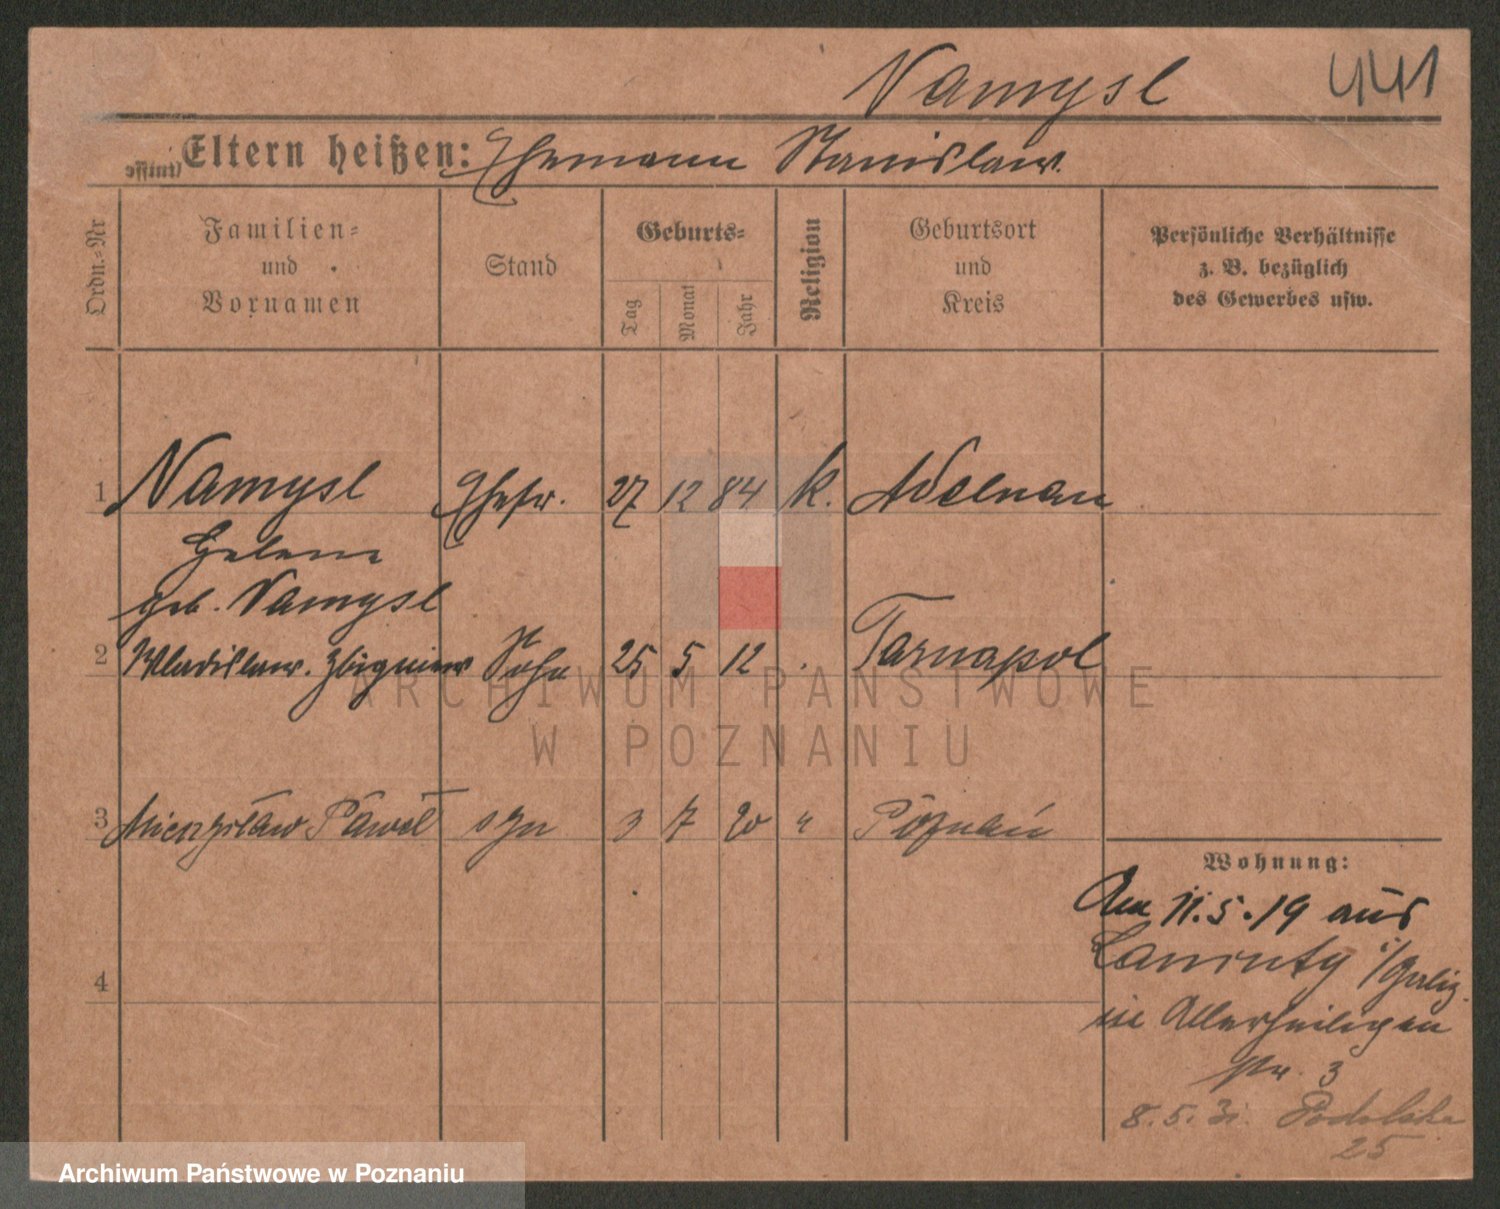 Namysl 441
Eltern heißen: Ehemann Stanislaw.
Ordn.-Nr
Familien-
und
Vornamen
Stand
Geburts-
Tag
Monat
Jahr
Religion
Geburtsort
und
Kreis
Persönliche Verhältnisse
z. B. bezüglich
des Gewerbes usw.
1 Namysl Ehefr. 27 12 84 k. Adelnau
Helene
geb. Namysl
2 Wladislaw. Zbigniew Sohn 25 5 12 . Tarnapol
ARCHIWUM PAŃSTWOWE
W POZNANIU
3 Mieczysław Paweł syn 3 7 20 " Poznań
Wohnung:
Am 11.5.19 aus
i/Galiz.
4
in Allerheiligen
str. 3
8.5.31. Podolska
25
Archiwum Państwowe w Poznaniu